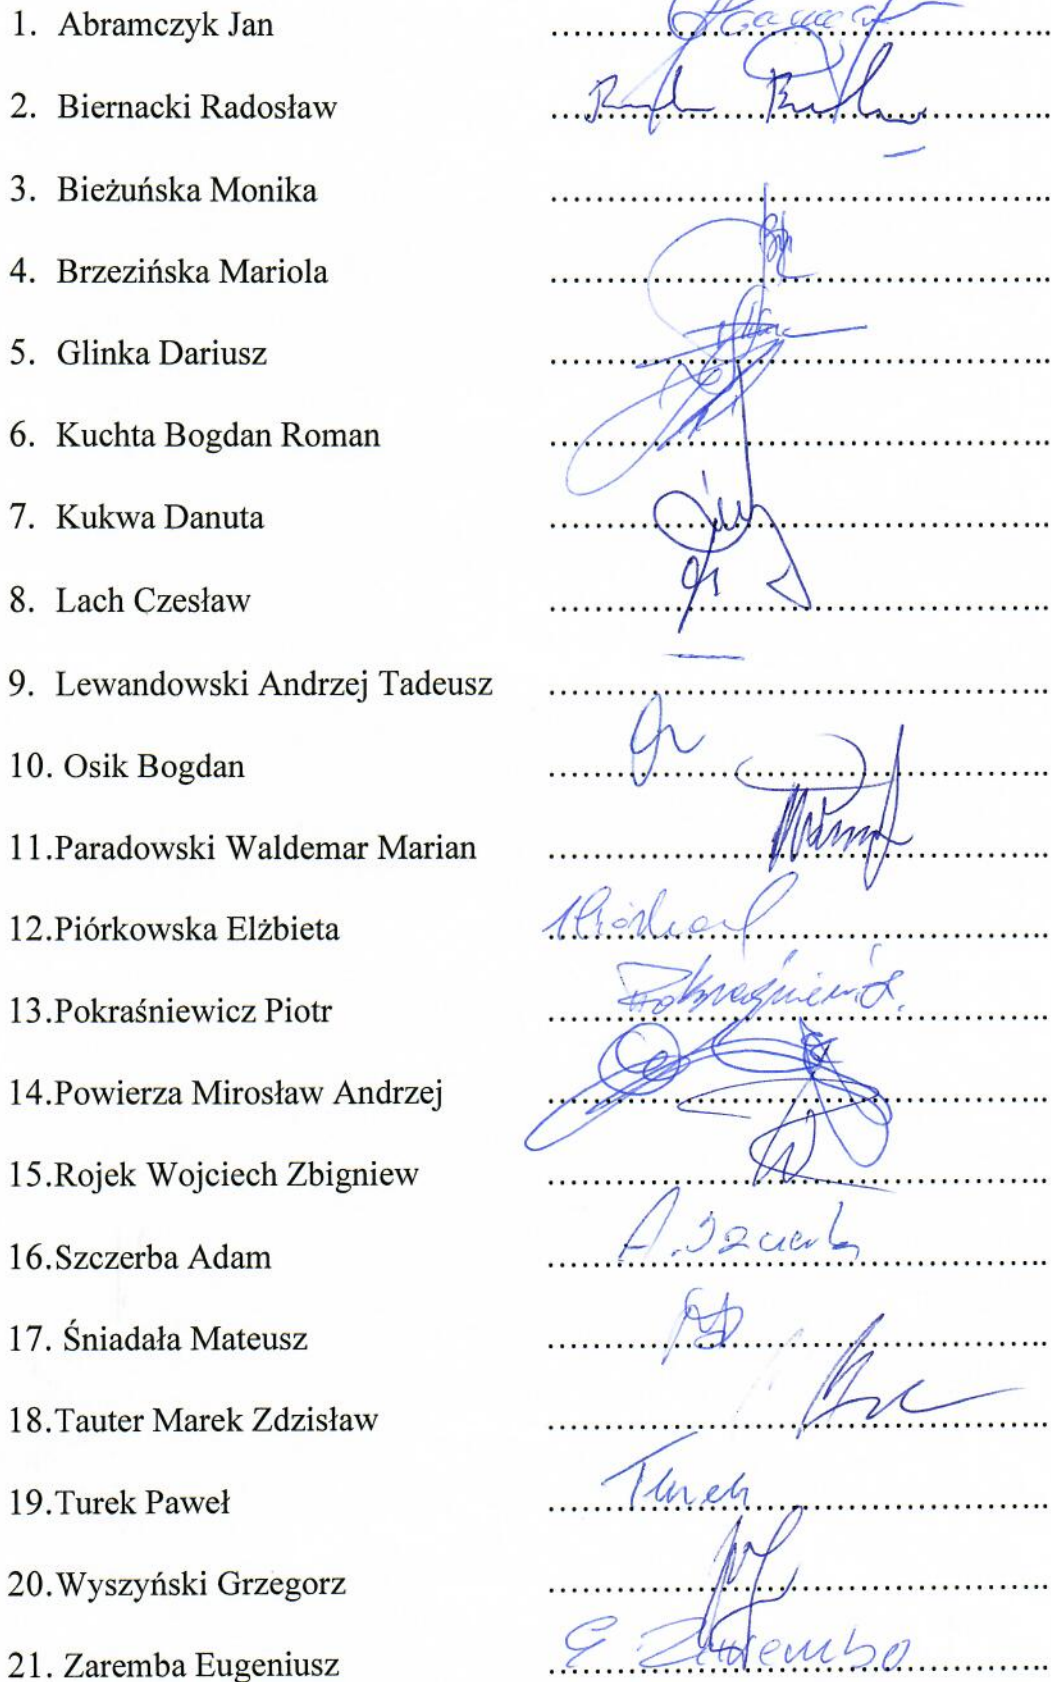 1. Abramczyk Jan ..................................................
2. Biernacki Radosław ..................................................
3. Bieżuńska Monika ..................................................
4. Brzezińska Mariola ..................................................
5. Glinka Dariusz ..................................................
6. Kuchta Bogdan Roman ..................................................
7. Kukwa Danuta ..................................................
8. Lach Czesław ..................................................
9. Lewandowski Andrzej Tadeusz ..................................................
10. Osik Bogdan ..................................................
11.Paradowski Waldemar Marian ..................................................
12.Piórkowska Elżbieta ..................................................
13.Pokraśniewicz Piotr ..................................................
14.Powierza Mirosław Andrzej ..................................................
15.Rojek Wojciech Zbigniew ..................................................
16.Szczerba Adam ..................................................
17. Śniadała Mateusz ..................................................
18.Tauter Marek Zdzisław ..................................................
19.Turek Paweł Turek
20.Wyszyński Grzegorz ..................................................
21. Zaremba Eugeniusz ..................................................